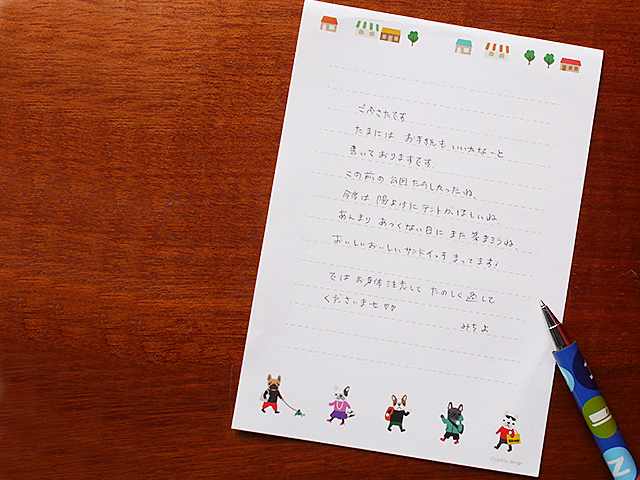 ごぶさたです
たまには お手紙も いいかなーと
書いております です
この前の 公園 たのしかったね、
今度は 陽よけに テントが ほしいね
あんまり あつくない日に また 集まろうね、
おいしいおいしい サンドイッチ まってます!
では お身体 注意して たのしく 過して
くださいませ♡♡
みちよ
N